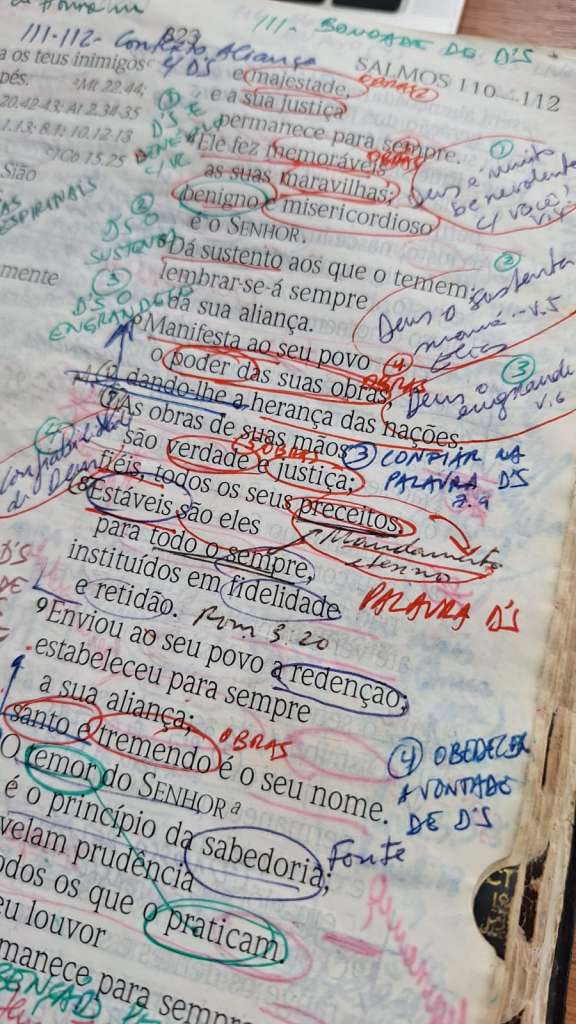 111- BONDADE DE D'S
111-112- Contexto Aliança
SALMOS 110—112
a os teus inimigos
pés.
Mt 22.44;
20.42-43; At 2.34-35
1.13; 8.1; 10.12,13
1Co 15.25
Sião
mente
e majestade, OBRAS
e a sua justiça
permanece para sempre.
4Ele fez memoráveis OBRAS
as suas maravilhas;
benigno e misericordioso
é o SENHOR.
5Dá sustento aos que o temem;
lembrar-se-á sempre
da sua aliança.
6Manifesta ao seu povo
o poder das suas obras, OBRAS
dando-lhe a herança das nações.
7As obras de suas mãos
são verdade e justiça; OBRAS
fiéis, todos os seus preceitos.
8Estáveis são eles
para todo o sempre,
instituídos em fidelidade
e retidão. Rom 3.20
9Enviou ao seu povo a redenção;
estabeleceu para sempre
a sua aliança;
santo e tremendo é o seu nome. OBRAS
O temor do SENHOR a
é o princípio da sabedoria; Fonte
velam prudência
odos os que o praticam.
eu louvor
manece para sempre
1
D'S É
2
D'S O
SUSTENTA
3
D'S O
ENGRANDECE
4
confiabilidade
de Deus
1
Deus é muito
benevolente
c/ você
2
Deus o sustenta
maná - v.5
Elias
3
Deus o
engrandece
v.6
4
3 CONFIAR NA
PALAVRA D'S
7.9
Mandamento
eterno
PALAVRA D'S
4 OBEDECER
A VONTADE
DE D'S